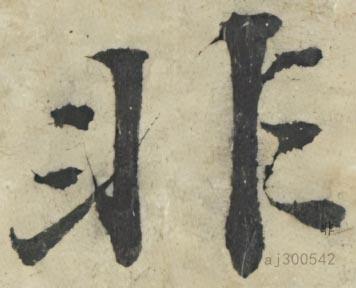 非
aj300542